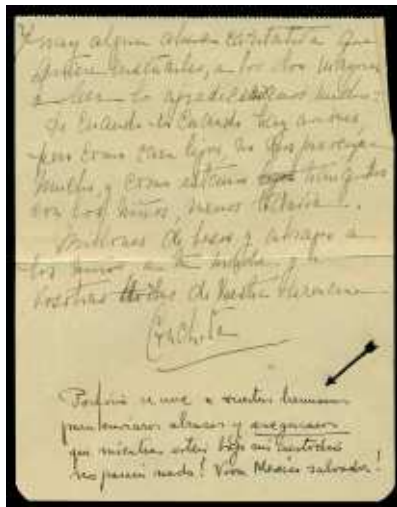 Y hay alguna alma caritativa que
quiere enseñarles, a los dos mayores
a leer lo agradeceríamos mucho;
de cuando en cuando hay aviones
pero como caen lejos, no nos preocupan
mucho, y como estamos tranquilos
con los niños, menos todavía.
Millones de besos y abrazos a
los
vosotros todos de vuestra hermana
Conchita
Porfirio se une a vuestra hermana
para enviaros abrazos y aseguraros
que mientras esten bajo mi custodia
no pasará nada! Viva Mexico salvador!